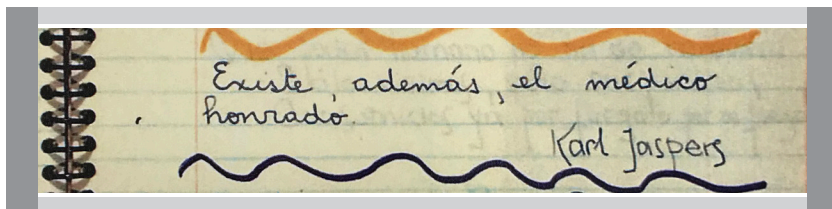 Existe, además, el médico
honrado.
Karl Jaspers